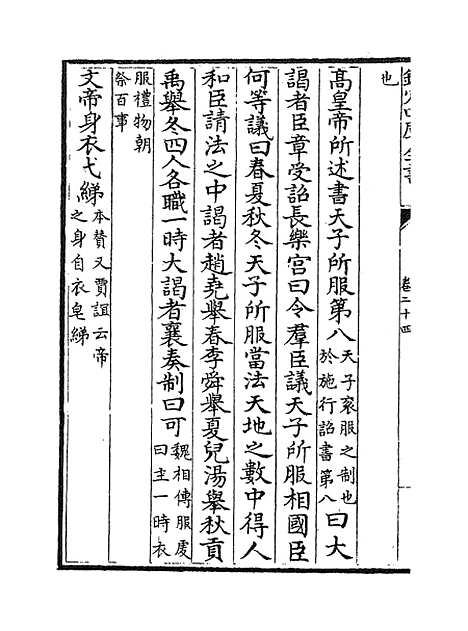 欽定四庫全書
卷二十四
也
高皇帝所述書天子所服第八天子衮服之制也於施行詔書第八曰大
謁者臣章受詔長樂宫曰令羣臣議天子所服相國臣
何等議曰春夏秋冬天子所服當法天地之數中得人
和臣請法之中謁者趙堯舉春李舜舉夏兒湯舉秋貢
禹舉冬四人各職一時大謁者襄奏制曰可魏相傳服虔曰主一時衣
服禮物朝祭百事
文帝身衣弋綈本賛又賈誼云帝之身自衣皂綈